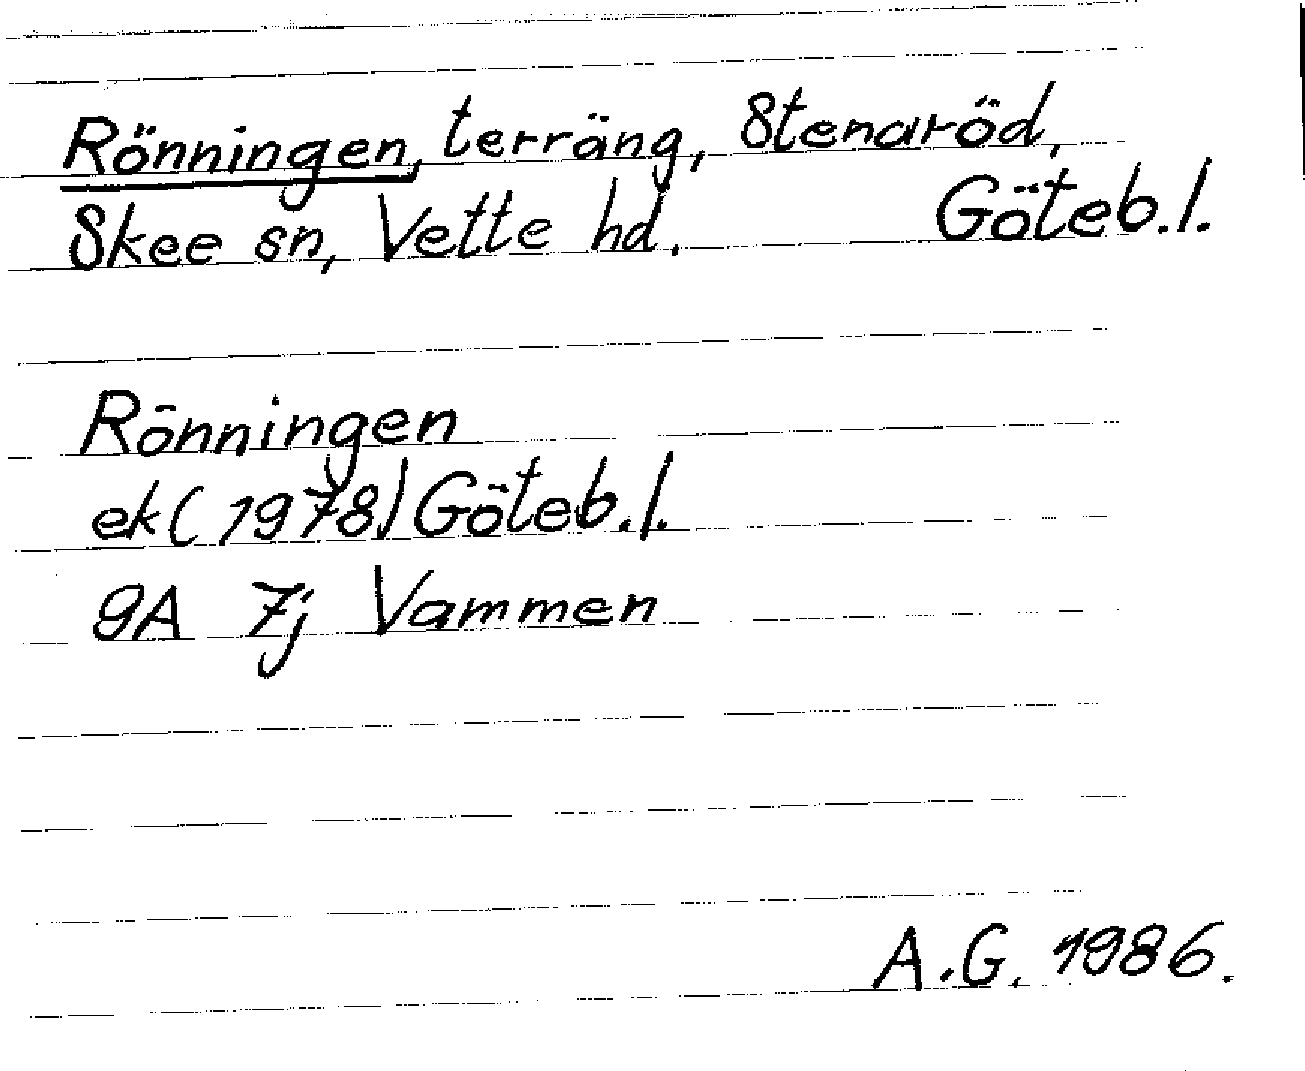 Rönningen, terräng, Stenaröd,
Skee sn, Vette hd. Göteb.l.
Rönningen
ek (1978) Göteb.l.
9A 7j Vammen
A.G. 1986.